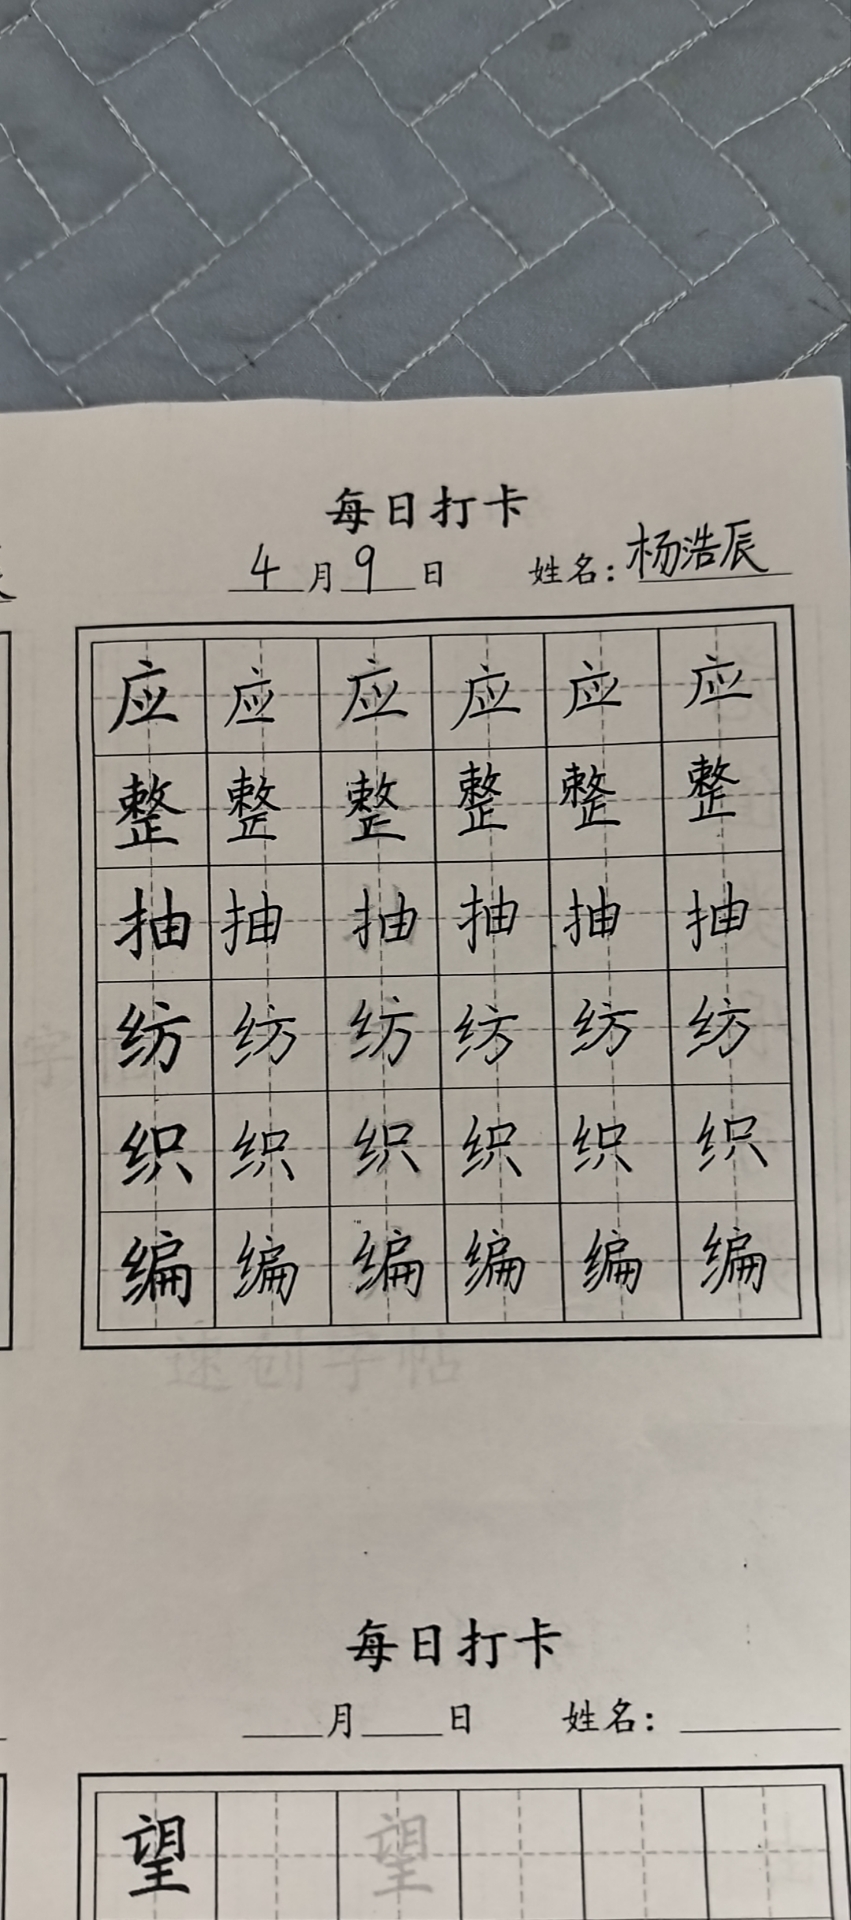 每日打卡
4月9日 姓名：杨浩辰
应应应应应应
整整整整整整
抽抽抽抽抽抽
纺纺纺纺纺纺
织织织织织织
编编编编编编
速创字帖
每日打卡
月 日 姓名：
望 望